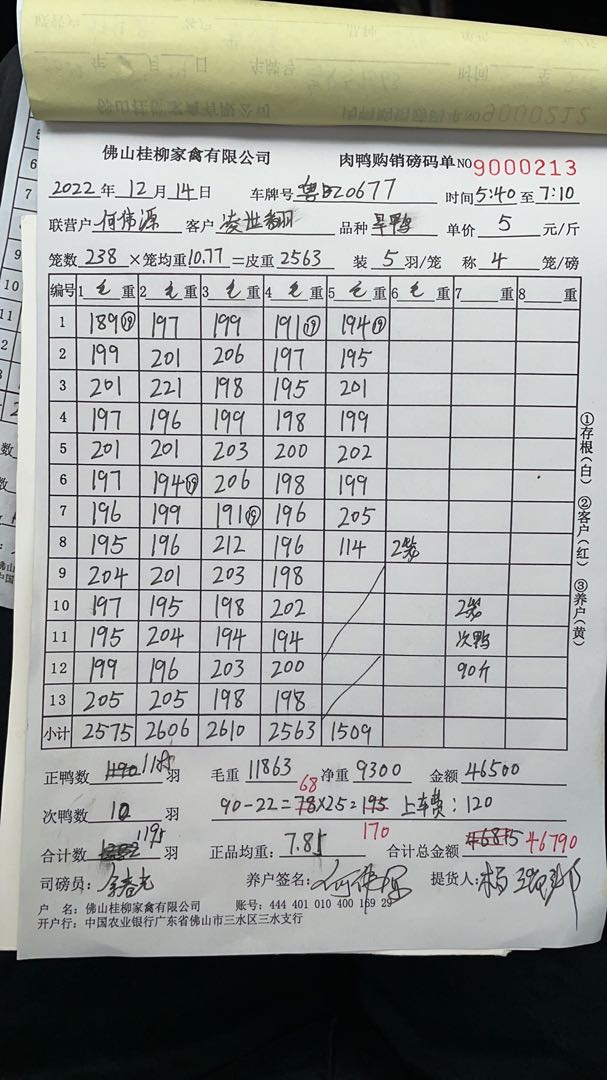 9000212
佛山桂柳家禽有限公司 肉鸭购销磅码单 NO 9000213
2022年 12月 14日 车牌号 粤BZ0677 时间 5:40 至 7:10
联营户 何伟源 客户 凌世翻 品种 旱鸭 单价 5 元/斤
笼数 238 ×笼均重 10.77 =皮重 2563 装 5 羽/笼 称 4 笼/磅
编号 1 毛 重 2 毛 重 3 毛 重 4 毛 重 5 毛 重 6 毛 重 7 重 8 重
1 189⑲ 197 199 191⑲ 194⑲
2 199 201 206 197 195
3 201 221 198 195 201
4 197 196 199 198 199
5 201 201 203 200 202
6 197 194⑲ 206 198 199
7 196 199 191⑲ 196 205
8 195 196 212 196 114 2笼
9 204 201 203 198
10 197 195 198 202 2笼
11 195 204 194 194 次鸭
12 199 196 203 200 90斤
13 205 205 198 198
小计 2575 2606 2610 2563 1509
正鸭数 1190 1185 羽 毛重 11863 净重 9300 金额 46500
次鸭数 10 羽 90-22=78 68 ×25=195 170 上车费:120
合计数 1195 羽 正品均重: 7.85 合计总金额 46815 46790
司磅员: 养户签名: 提货人:
户 名:佛山桂柳家禽有限公司 账号:444 401 010 400 169 29
开户行:中国农业银行广东省佛山市三水区三水支行
①存根(白) ②客户(红) ③养户(黄)